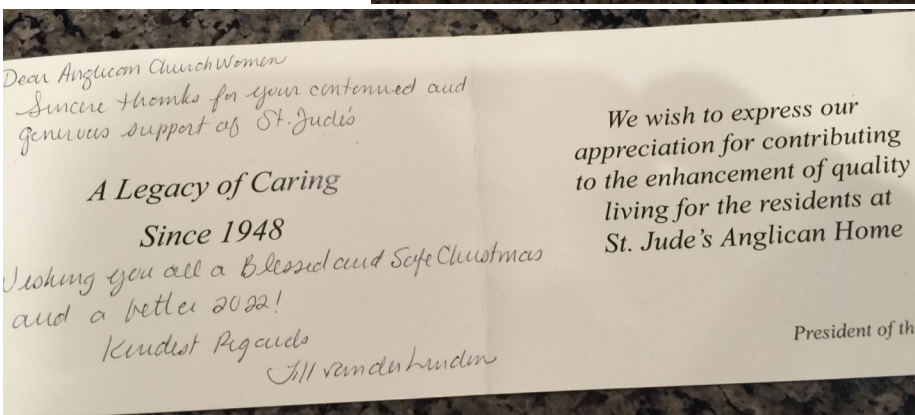 Dear Anglican Church Women
Sincere thanks for your continued and
generous support of St. Jude's
A Legacy of Caring
Since 1948
Wishing you all a Blessed and Safe Christmas
and a better 2022!
Kindest Regards
Jill vanderLinden
We wish to express our
appreciation for contributing
to the enhancement of quality
living for the residents at
St. Jude's Anglican Home
President of th